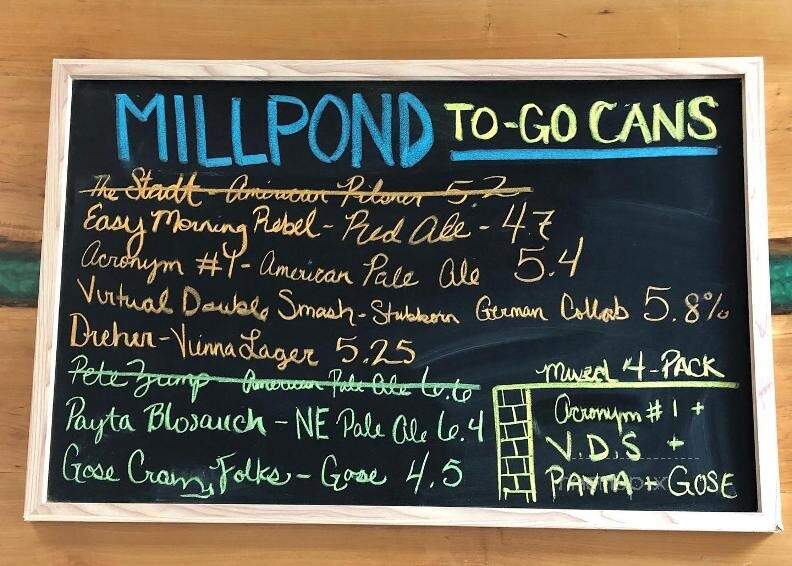 MILLPOND TO-GO CANS
The Stadt - American Pilsner 5.2
Easy Morning Rebel - Red Ale - 4.7
Acronym #1 - American Pale Ale 5.4
Virtual Double Smash - Stubborn German Collab 5.8%
Dreher - Vienna Lager 5.25
Pete Zump American Pale Ale 6.6
Payta Blosauch - NE Pale Ale 6.4
Gose Crazy, Folks - Gose 4.5
Mixed 4-PACK
Acronym #1 +
V.D.S +
PAYTA + GOSE